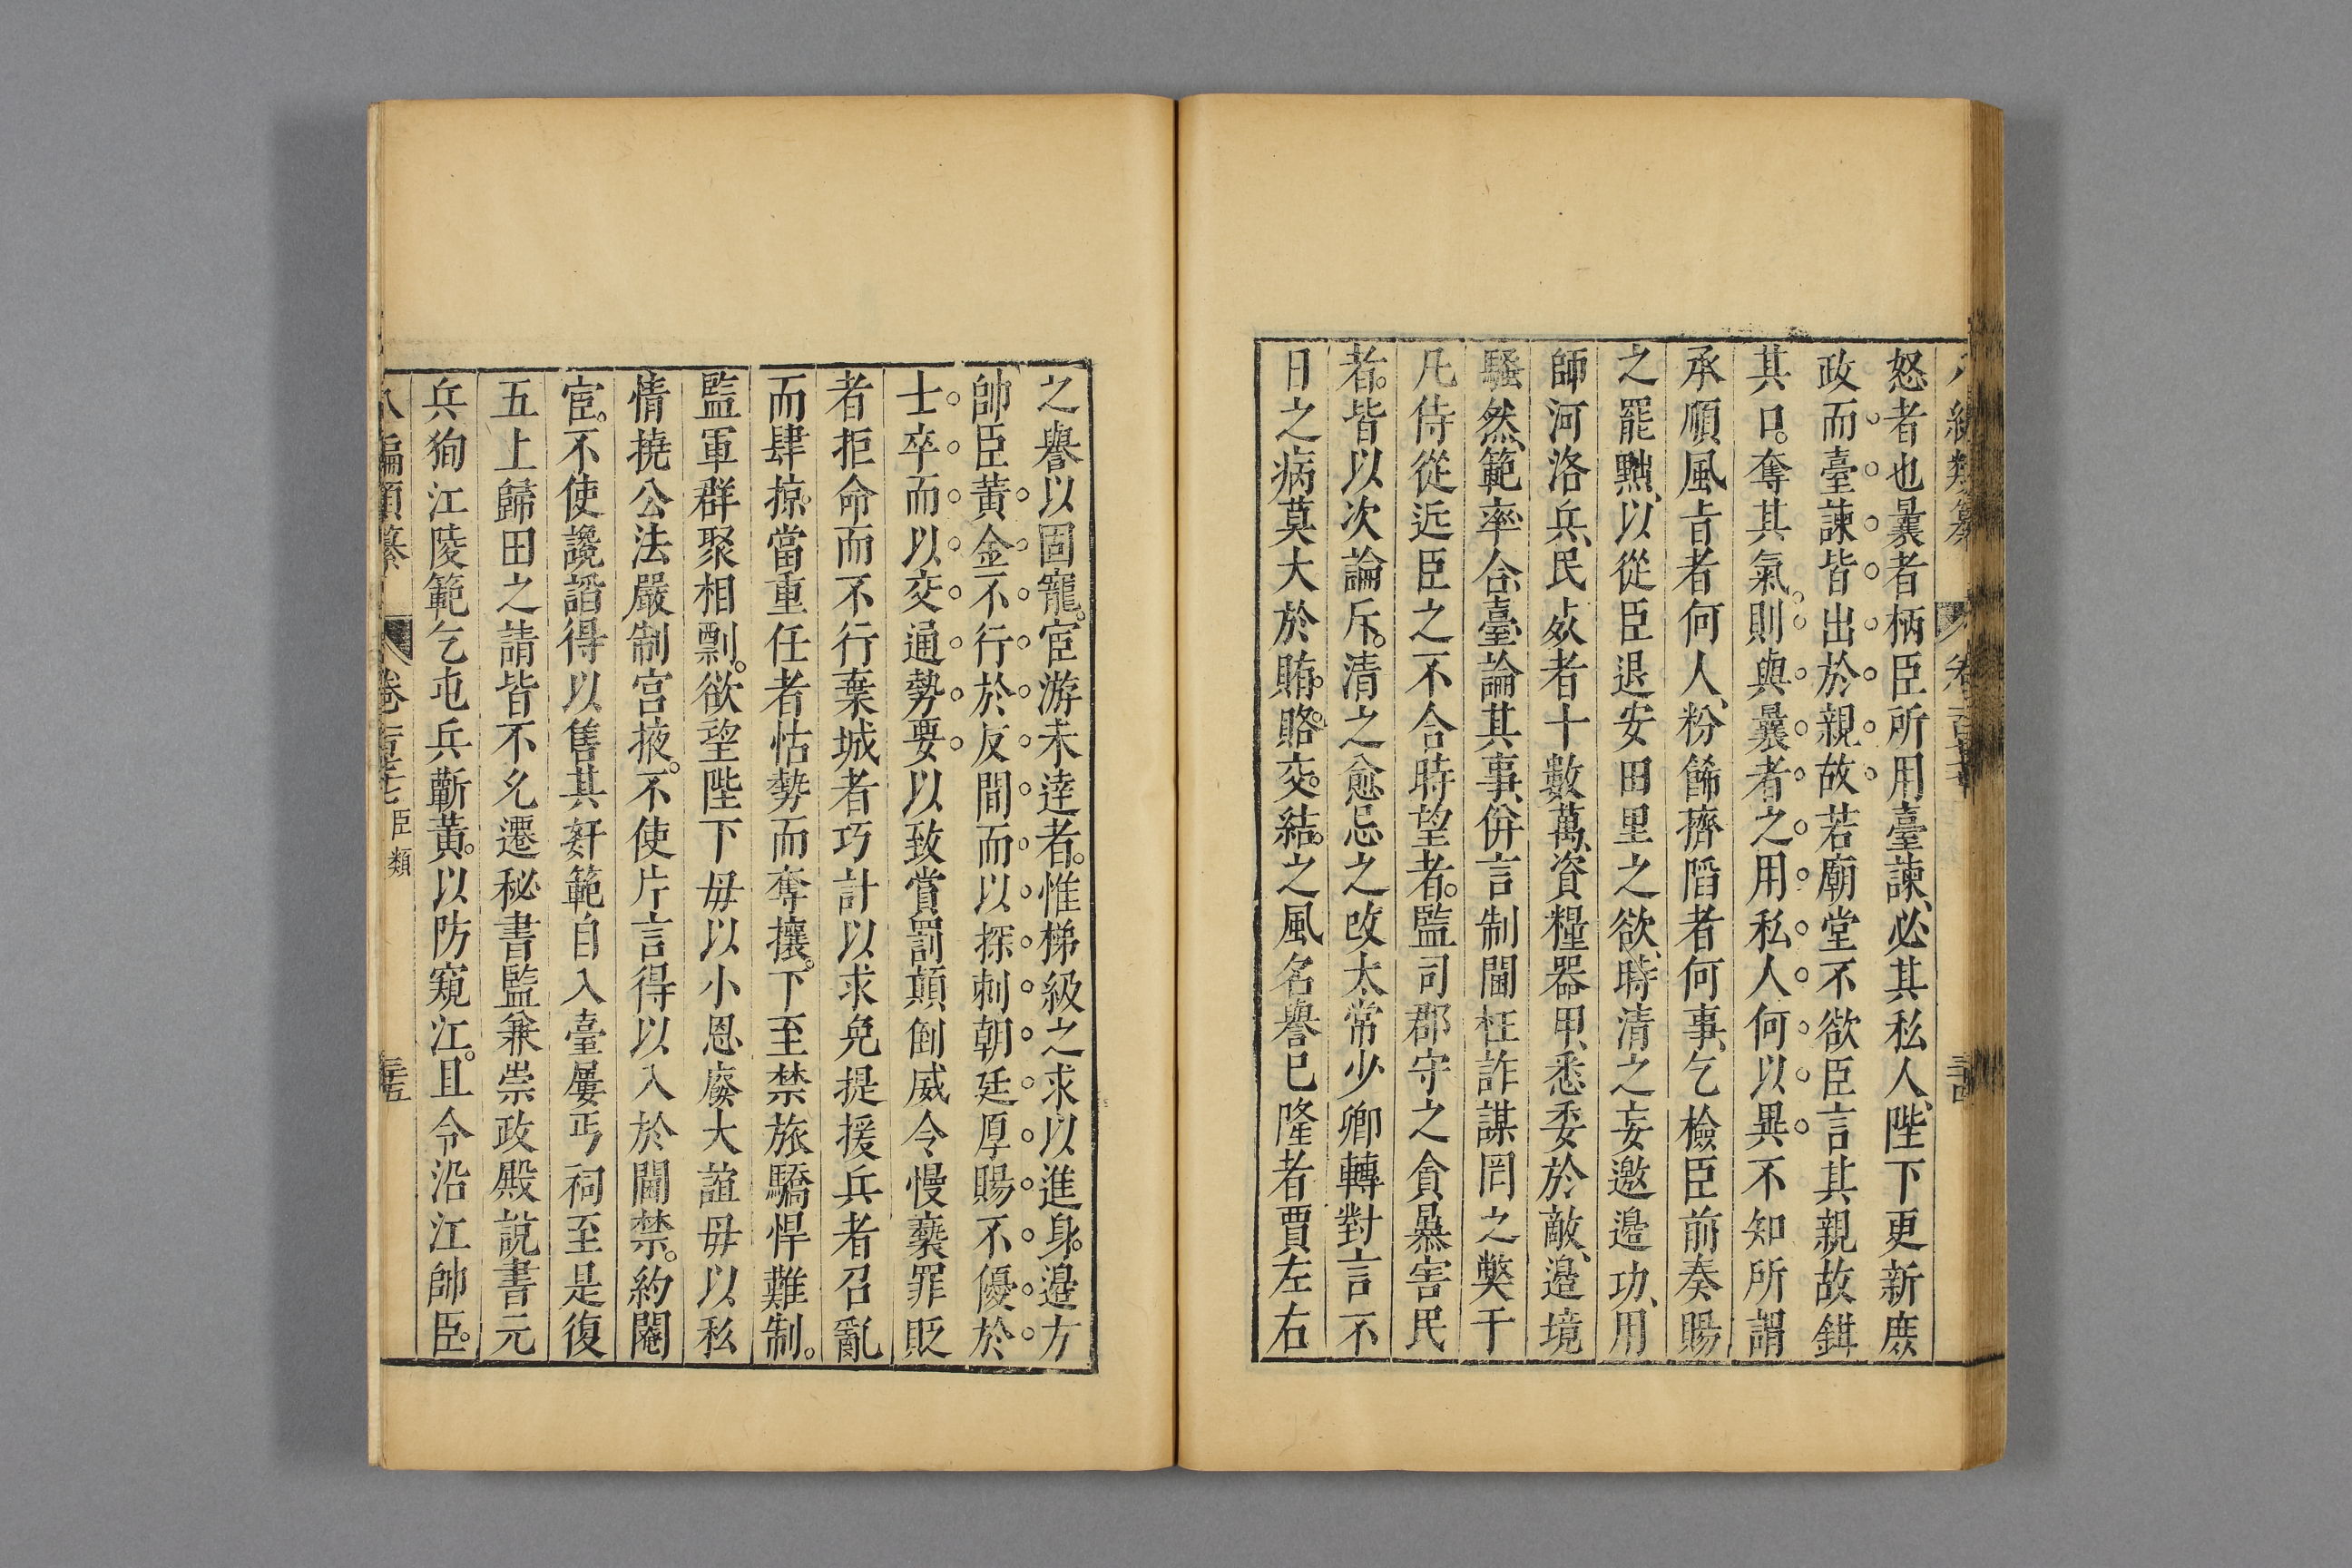 編類纂 卷一百 三十四
怒者也曩者柄臣所用臺諫必其私人陛下更新庻
政而臺諫皆出於親故若廟堂不欲臣言其親故鉗
其口。奪其氣則與曩者之用私人何以異不知所謂
承順風旨者何人、粉餙擠䧟者何事、乞檢臣前奏賜
之罷黜、以從臣退安田里之欲、時清之妄邀邉功、用
師河洛兵、民死者十數萬、資糧器甲、悉委於敵、邉境
騷然、範率合臺論其事、併言制閫枉詐謀罔之獘于
凡侍從近臣之不合時望者。監司郡守之貪暴害民
者。皆以次論斥。清之愈忌之改太常少卿轉對言不
日之病莫大於賄。賂。交。結。之風名譽已隆者賈左右
之譽以固寵。宦游未逹者。惟梯級之求以進身。邉方
帥臣黃金不行於反間而以探刺朝廷厚賜不優於
士卒而以交通勢要以致賞罰顛倒威令慢䙝罪貶
者拒命而不行棄城者巧計以求免提援兵者召亂
而肆掠。當重任者怙勢而奪攘。下至禁旅驕悍難制。
監軍群聚相剽。欲望陛下毋以小恩廢大誼毋以私
情撓公法嚴制宮掖。不使片言得以入於閫禁。約閹
宦。不使讒譖得以售其奸範自入臺屢丐祠至是復
五上歸田之請皆不允遷秘書監兼崇政殿說書元
兵狥江陵範乞屯兵蘄黃。以防窺江。且令沿江帥臣。
八編類纂 卷一百 臣類 三十五